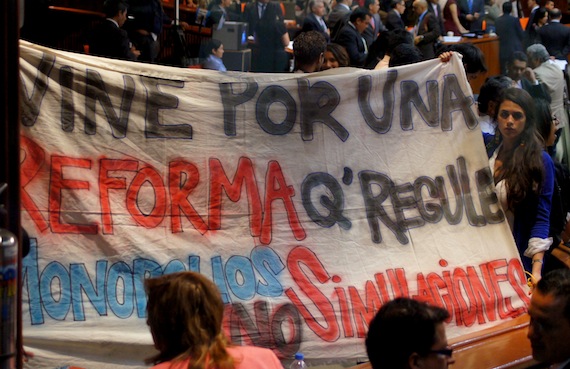 VINE POR UNA
REFORMA Q' REGULE
MONOPOLIOS
NO SIMULACIONES